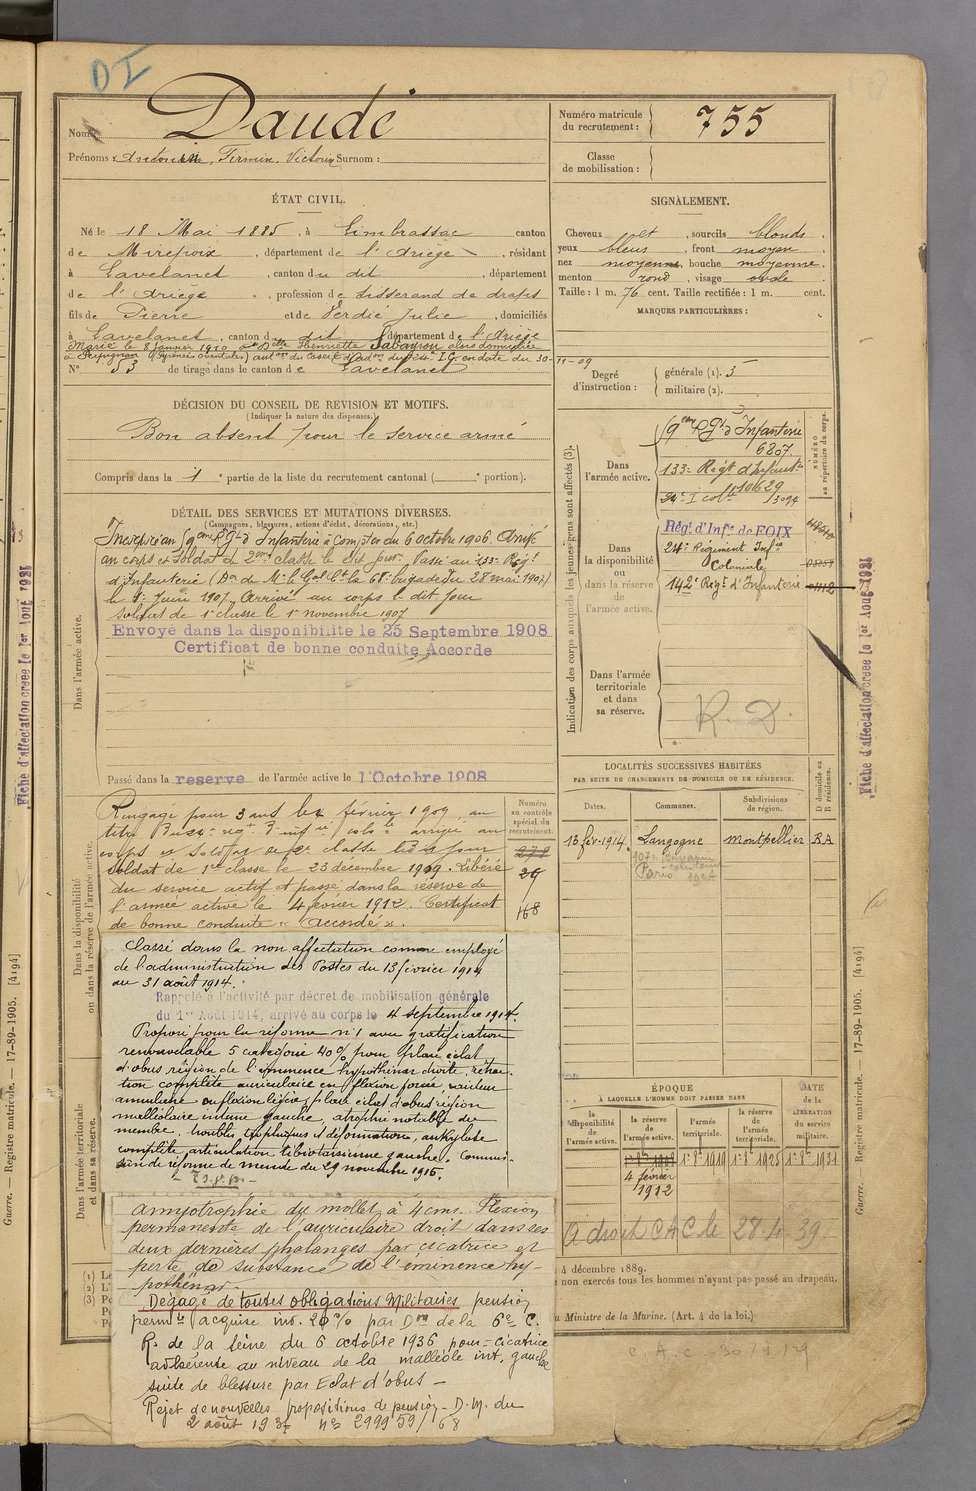 DI
Nom : Daudé
Prénoms : Antonin, Firmin, Victorin Surnom :
Numéro matricule du recrutement : 755
Classe de mobilisation :
ÉTAT CIVIL.
Né le 18 Mai 1885, à Limbrassac canton
de Mirepoix, département de l'Ariège, résidant
à Lavelanet, canton du dit, département
de l'Ariège, profession de tisserand de draps
fils de Pierre et de Ferdié Julie, domiciliés
à Lavelanet, canton du dit, département de l'Ariège
Marié le 8 janvier 1910 à Dlle Henriette Sabayrou alors domiciliée
à Perpignan (Pyrénées orientales) auton du Conseil d'adon du 24e I.C. en date du 30-11-09
N° 53 de tirage dans le canton de Lavelanet
SIGNALEMENT.
Cheveux et, sourcils blonds
yeux bleus, front moyen
nez moyenne, bouche moyenne
menton rond, visage ovale
Taille : 1 m. 76 cent. Taille rectifiée : 1 m. cent.
MARQUES PARTICULIÈRES :
Degré d'instruction : générale (1). 3
militaire (2).
DÉCISION DU CONSEIL DE REVISION ET MOTIFS.
(Indiquer la nature des dispenses.)
Bon absent pour le service armé
Compris dans la 1e partie de la liste du recrutement cantonal ( e portion).
DÉTAIL DES SERVICES ET MUTATIONS DIVERSES.
(Campagnes, blessures, actions d'éclat, décorations, etc.)
Dans l'armée active.
Incorporé au 9em Rgt d'Infanterie à compter du 6 octobre 1906. Arrivé
au corps et soldat de 2eme classe le dit jour. Passé au 133e Régt
d'Infanterie (Don de Mr le Gal Ct la 68e brigade du 28 mai 1907)
le 1er Juin 1907. Arrivé au corps le dit jour
soldat de 1e classe le 1er novembre 1907
Envoyé dans la disponibilité le 25 Septembre 1908
Certificat de bonne conduite Accordé
Passé dans la réserve de l'armée active le 1 Octobre 1908
Dans la disponibilité ou dans la réserve de l'armée active.
Numéro au contrôle spécial du recrutement.
Rengagé pour 3 ans le 4 février 1909, au
corps et soldat de 2e classe le dit jour
soldat de 1re classe le 23 décembre 1909. Libéré
du service actif et passé dans la réserve de
l'armée active le 4 février 1912. Certificat
de bonne conduite « Accordé ».
279
29
168
Classé dans la non affectation comme employé
de l'administration des Postes du 13 février 1914
au 31 août 1914.
Rappelé à l'activité par décret de mobilisation générale
du 1er Août 1914, arrivé au corps le 4 septembre 1914.
Proposé pour la réforme n°1 avec gratification
renouvelable 5 catégorie 40% pour plaie éclat
d'obus région de l'éminence hypothénar droite, rétrac-
tion complète auriculaire en flexion forcée, raideur
annulaire en flexion légère, plaie éclat d'obus région
malléolaire interne gauche, atrophie notable du
membre, troubles trophiques et déformation, ankylose
complète articulation tibiotarsienne gauche. Commis-
sion de réforme de Mende du 29 novembre 1915.
Dans l'armée territoriale et dans sa réserve.
amyotrophie du mollet à 4 cms. Flexion
permanente de l'auriculaire droit dans ses
deux dernières phalanges par cicatrice et
perte de substance de l'éminence hy-
pothénar
Dégagé de toutes obligations Militaires pension
permte acquise inv. 20% par Don de la 6e C.
R. de la Seine du 6 octobre 1936 pour = cicatrice
adhérente au niveau de la malléole int. gauche
suite de blessure par Eclat d'obus -
Rejet de nouvelles propositions de pension - D.M. du
2 août 1937 n° 299959/68
Indication des corps auxquels les jeunes gens sont affectés (3).
NUMÉRO au répertoire du corps.
Dans l'armée active.
9em Rgt d'Infanterie
6807
133e Régt d'Infanterie
10629
24e I colle 3094
Dans la disponibilité ou dans la réserve de l'armée active.
Régt d'Infie de FOIX
24e Régiment Infie
Coloniale
142e Régt d'Infanterie
Dans l'armée territoriale et dans sa réserve.
R. D.
LOCALITÉS SUCCESSIVES HABITÉES
PAR SUITE DE CHANGEMENTS DE DOMICILE OU DE RÉSIDENCE.
Dates. Communes. Subdivisions de région. D domicile ou R résidence.
13 fév. 1914. Langogne Montpellier RA
Paris
ÉPOQUE
À LAQUELLE L'HOMME DOIT PASSER DANS
la disponibilité de l'armée active. la réserve de l'armée active. l'armée territoriale. la réserve de l'armée territoriale. DATE de la LIBÉRATION du service militaire.
4 février 1912 1er 8bre 1919 1er 8bre 1925 1er 8bre 1931
A droit CAC le 28.4.39
4 décembre 1889.
non exercés tous les hommes n'ayant pas passé au drapeau.
Ministre de la Marine. (Art. 4 de la loi.)
Fiche d'affectation créée le 1er Août 1921
Guerre. — Registre matricule. — 17-89-1905. [4194]